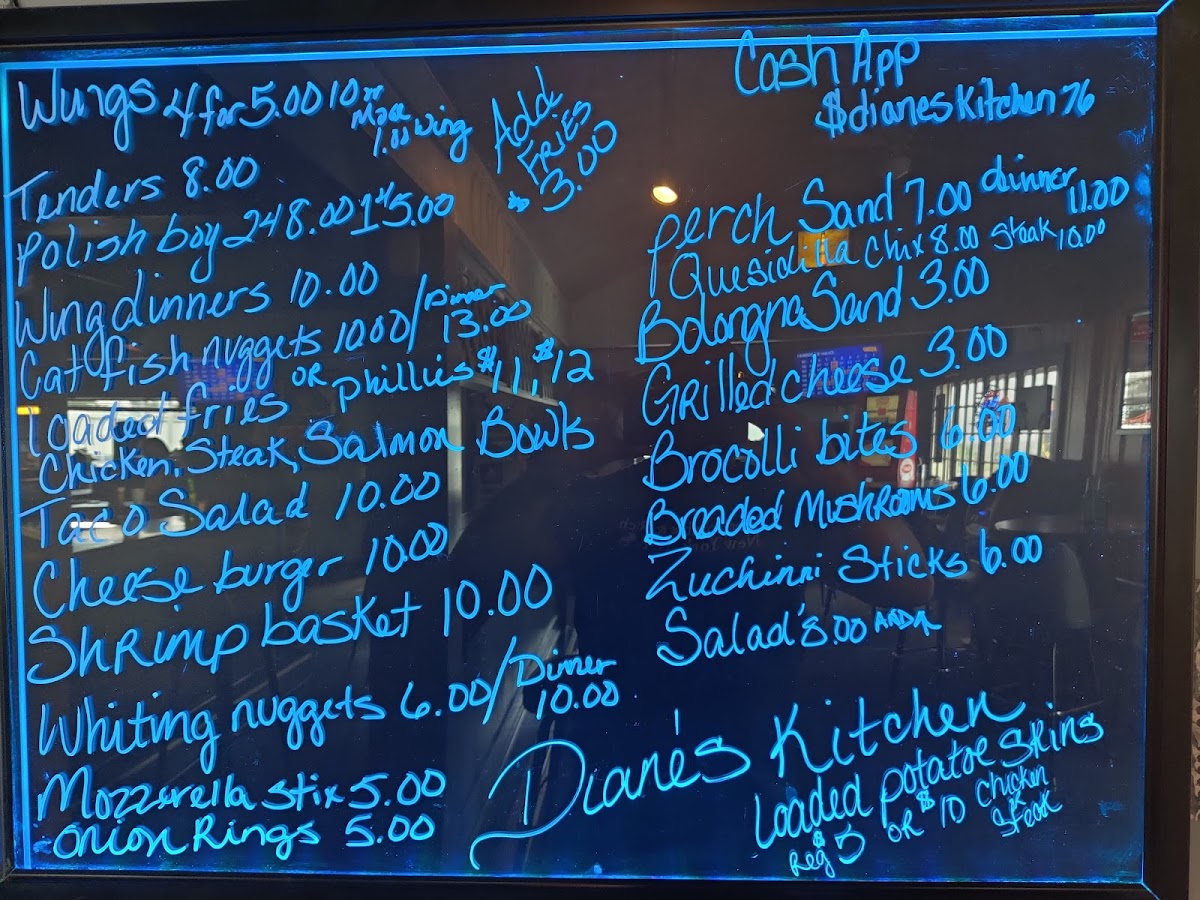 Wings 4 for 5.00 10 or
More
1.00 wing
Add
FRIES
$ 3.00
Tenders 8.00
Polish boy 2 4 8.00 1 4 5.00
Wing dinners 10.00
Catfish nuggets 10.00/Dinner
13.00
Loaded fries OR Phillies $11, $12
Chicken, Steak, Salmon Bowls
Taco Salad 10.00
Cheese burger 10.00
Shrimp basket 10.00
Whiting nuggets 6.00/Dinner
10.00
Mozzerella Stix 5.00
Onion Rings 5.00
Cash App
$dianesKitchen76
Perch Sand 7.00 dinner
11.00
Quesidilla Chix 8.00 Steak 10.00
Bolongna Sand 3.00
Grilled cheese 3.00
Brocolli bites 6.00
Breaded Mushrooms 6.00
Zuchinni Sticks 6.00
Salad's 8.00
Diane's Kitchen
Loaded potatoe skins
Reg $5 OR $10 Chicken
Steak